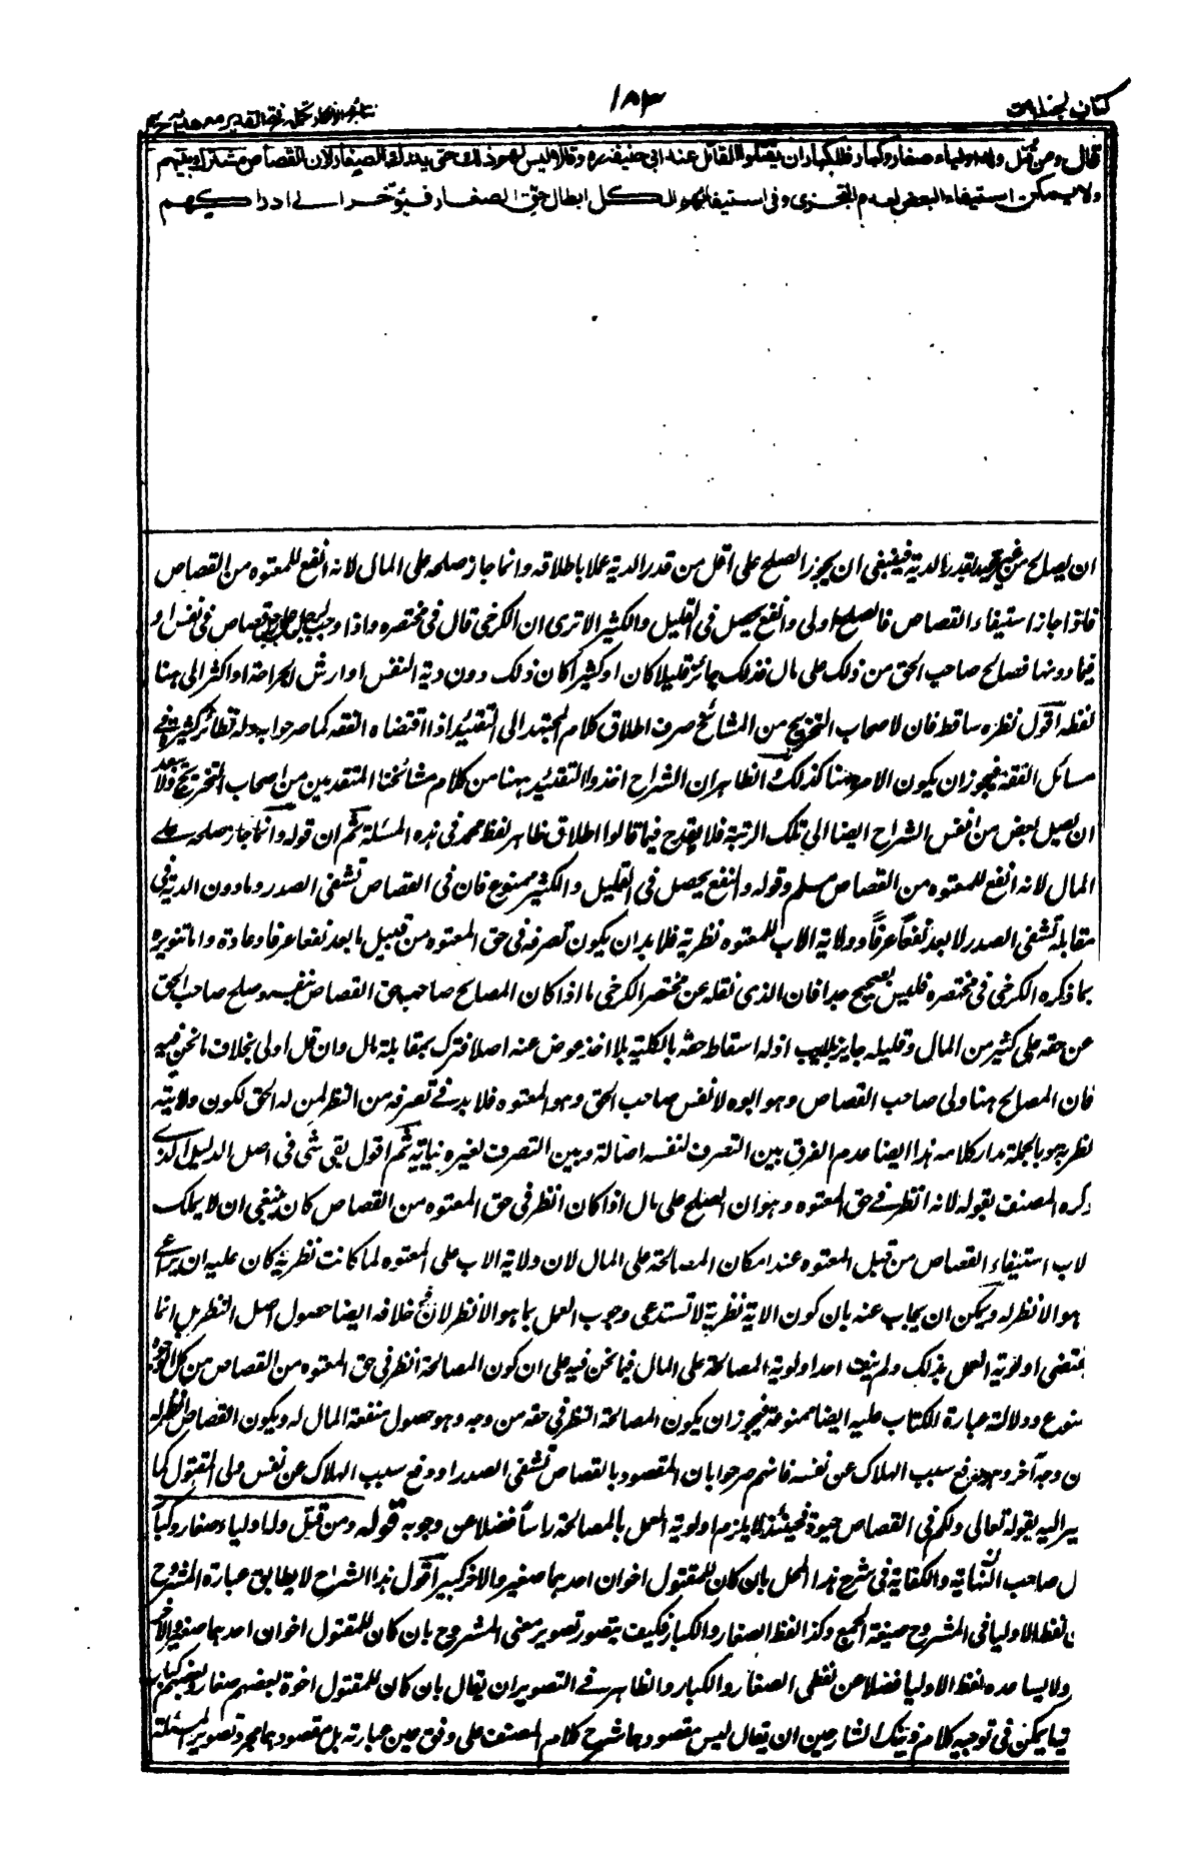 كتاب الجنايات
١٨٣
نتائج الافكار تكملة فتح القدير مع هداية ج
قال ومن قتل وله اولياء صغار وكبار فللكبار ان يقتلوا القاتل عند ابى حنيفة ره وقالا ليس لهم ذلك حتى يدرك الصغار لان القصاص مشترك بينهم
ولا يمكن استيفاء البعض لعدم التجزى وفى استيفائهم الكل ابطال حق الصغار فيؤخر الى ادراكهم
ان يصالح من غير تقييد بقدر الدية فينبغى ان يجوز الصلح على اقل من قدر الدية عملا باطلاقه وانما جاز صلحه على المال لانه انفع للمعتوه من القصاص
فاذا جاز استيفاء القصاص فالصلح اولى والنفع يحصل فى القليل والكثير الا ترى ان الكرخى قال فى مختصره واذا وجب لرجل على رجل قصاص فى نفس او
فيما دونها فصالح صاحب الحق من ذلك على مال فذلك جائز قليلا كان او كثيرا كان ذلك دون دية النفس او ارش الجراحة او اكثر الى هنا
لفظه اقول نظره ساقط فان لاصحاب التخريج من المشائخ صرف اطلاق كلام المجتهد الى التقييد اذا اقتضاه الفقه كما صرحوا به وله نظائر كثيرة فى
مسائل الفقه فيجوز ان يكون الامر ههنا كذلك والظاهر ان الشراح اخذوا التقييد ههنا من كلام مشائخنا المتقدمين من اصحاب التخريج ولا يبعد
ان يصل بعض من انفس الشراح ايضا الى تلك الرتبة فلا يقدح فيما قالوا اطلاق ظاهر لفظ محمد فى هذه المسئلة ثم ان قوله وانما جاز صلحه على
المال لانه انفع للمعتوه من القصاص مسلم وقوله والنفع يحصل فى القليل والكثير ممنوع فان فى القصاص تشفى الصدر وما دون الدية فى
مقابلة تشفى الصدر لا يعد نفعا عرفا وولاية الاب للمعتوه نظرية فلا بد ان يكون تصرفه فى حق المعتوه من قبيل ما يعد نفعا عرفا وعادة واما تنويره
بما ذكره الكرخى فى مختصره فليس بصحيح جدا فان الذى نقله عن مختصر الكرخى ما اذا كان المصالح صاحب حق القصاص بنفسه وصلح صاحب الحق
عن حقه على كثير من المال وقليله جايز بلا ريب اذ له اسقاط حقه بالكلية بلا اخذ عوض عنه اصلا فترك بمقابلة مال وان قل اولى بخلاف ما نحن فيه
فان المصالح هنا ولى صاحب القصاص وهو ابوه لا نفس صاحب الحق وهو المعتوه فلا بد فى تصرفه من النظر لمن له الحق لكون ولايته
نظرية وبالجملة مدار كلامه هذا ايضا عدم الفرق بين التصرف لنفسه اصالة وبين التصرف لغيره نيابة ثم اقول بقى شى فى اصل الدليل الذى
ذكره المصنف بقوله لانه انظر فى حق المعتوه وهو ان الصلح على مال اذا كان انظر فى حق المعتوه من القصاص كان ينبغى ان لا يملك
لاب استيفاء القصاص من قبل المعتوه عند امكان المصالحة على المال لان ولاية الاب على المعتوه لما كانت نظرية كان عليه ان يراعى
هو الانظر له ويمكن ان يجاب عنه بان كون الولاية نظرية لا تستدعى وجوب العمل بما هو الانظر لان فى خلافه ايضا حصول اصل النظر بل انما
يقتضى اولوية العمل بذلك ولم ينف احد اولوية المصالحة على المال فيما نحن فيه على ان كون المصالحة انظر فى حق المعتوه من القصاص من كل الوجوه
ممنوع ودلالة عبارة الكتاب عليه ايضا ممنوعة فيجوز ان يكون المصالحة انظر فى حقه من وجه وهو حصول منفعة المال له ويكون القصاص انظر له
من وجه آخر وهو دفع سبب الهلاك عن نفسه فانهم صرحوا بان المقصود بالقصاص تشفى الصدر او دفع سبب الهلاك عن نفس ولى المقتول كما
يشير اليه بقوله تعالى ولكم فى القصاص حيوة فحينئذ لا يلزم اولوية العمل بالمصالحة راسا فضلا عن وجوبه قوله ومن قتل وله اولياء صغار وكبار
ل صاحب النهاية والكفاية فى شرح هذا المحل بان كان للمقتول اخوان احدهما صغير والاخر كبير اقول هذا الشرح لا يطابق عبارة المشروح
ن لفظ الاوليا فى المشروح صيغة الجمع وكذا لفظ الصغار والكبار فكيف يتصور تصوير معنى المشروح بان كان للمقتول اخوان احدهما صغير والاخر
ولا يساعده لفظ الاوليا فضلا عن لفظى الصغار والكبار والظاهر فى التصوير ان يقال بان كان للمقتول اخوة بعضهم صغار وبعضهم كبار
يمكن فى توجيه كلام ذينك الشارحين ان يقال ليس مقصودهما شرح كلام المصنف على وفق عين عبارته بل مقصودهما مجرد تصوير المسئلة